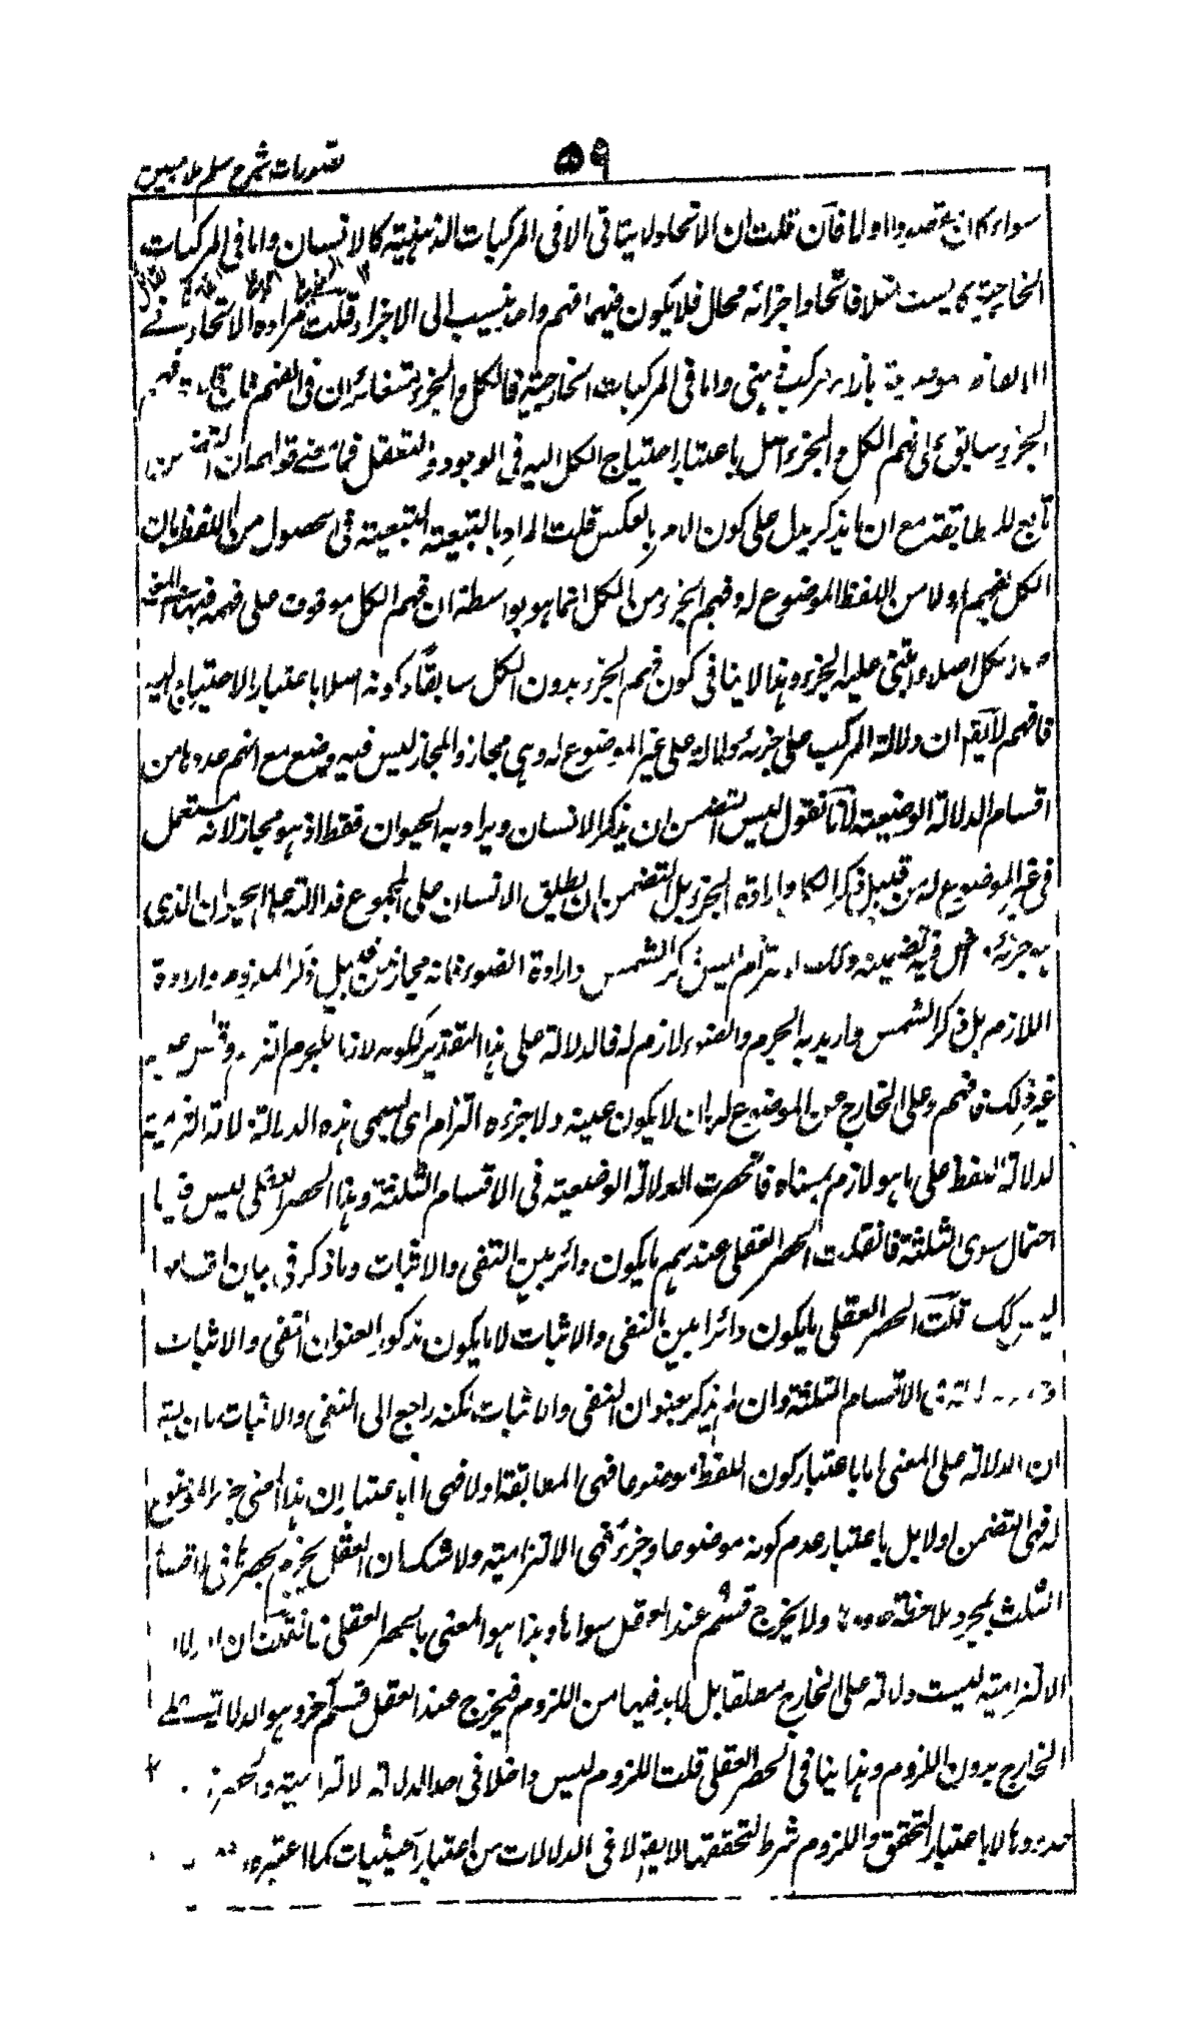 ۵۹
تصورات شرح سلم ملا مبين
سواء كان مقصودا اولا فان قلت ان الاتحاد لا يتاتى الا فى المركبات الذهنية كالانسان واما فى المركبات
الخارجية كالبيت مثلا فاتحاد اجزائه محال فلا يكون فيها فهم واحد ينسب الى الاجزاء قلت مراده الاتحاد فى
واما فى المركبات الخارجية فالكل والجزء متغائران فى الفهم فان قلت فهم
الجزء سابق على فهم الكل والجزء اصل باعتبار احتياج الكل اليه فى الوجود والتعقل فما معنى قولهم ان التضمن
تابع للمطابقة مع ان ما يذكر يدل على كون الامر بالعكس قلت المراد بالتبعية التبعية فى الحصول من اللفظ بان
الكل يفهم اولا من اللفظ الموضوع له وفهم الجزء من الكل انما هو بواسطة ان فهم الكل موقوف على فهمه فبهذا المعنى
صار الكل اصلا ويبتنى عليه الجزء وهذا لا ينافى كون فهم الجزء بدون الكل سابقا وكونه اصلا باعتبار الاحتياج اليه
فافهم لا يقم ان دلالة المركب على جزئه دلالة على غير الموضوع له وهى مجاز والمجاز ليس فيه وضع مع انهم عدوها من
اقسام الدلالة الوضعية لانا نقول ليس التضمن ان يذكر الانسان ويراد به الحيوان فقط اذ هو مجاز لانه مستعمل
فى غير الموضوع له من قبيل ذكر الكل وارادة الجزء بل التضمن ان يطلق الانسان على المجموع فدلالته على الحيوان الذى
هو جزئه تضمينه وكذلك الالتزام ليس ذكر الشمس وارادة الضوء فانه مجاز من قبيل ذكر الملزوم وارادة
اللازم بل ذكر الشمس واريد به الجرم والضوء لازم له فالدلالة على هذا التقدير لكونه لازما للجرم التزام وقس عليه
غير ذلك فافهم وعلى الخارج عن الموضوع له بان لا يكون عينه ولا جزءه التزام اى يسمى هذه الدلالة دلالة التزامية
لدلالة اللفظ على ما هو لازم لمعناه فانحصرت الدلالة الوضعية فى الاقسام الثلثة وهذا الحصر العقلى ليس فيها
احتمال سوى الثلثة فان قلت الحصر العقلى عندهم ما يكون دائر بين النفى والاثبات وما ذكر فى بيان اقسامها
ليس كك قلت الحصر العقلى ما يكون دائرا بين النفى والاثبات لا ما يكون مذكورا بعنوان النفى والاثبات
الاقسام الثلثة وان لم يذكر بعنوان النفى والاثبات لكنه راجع الى النفى والاثبات
ان الدلالة على المعنى اما باعتبار كون اللفظ موضوعا فهى المطابقة اولا فهى اما باعتبار ان هذا المعنى جزء الموضوع
له فهى التضمن اولا بل باعتبار عدم كونه موضوعا وجزءه فهى الالتزامية ولا شك ان العقل يجزم بحصرها فى الاقسام
الثلث بمجرد ملاحظة حدودها ولا يخرج قسم عند العقل سواها وهذا هو المعنى بالحصر العقلى فان قلت ان الدلالة
الالتزامية ليست دلالة على الخارج مطلقا بل لا بد فيها من اللزوم فيخرج عند العقل قسم آخر وهو الدلالة على
الخارج بدون اللزوم وهذا ينافى الحصر العقلى قلت اللزوم ليس داخلا فى حد الدلالة الالتزامية والحصر
حدودها لا باعتبار التحقق واللزوم شرط لتحققها لا يقم لا فى الدلالات من اعتبار الحيثيات كما اعتبره